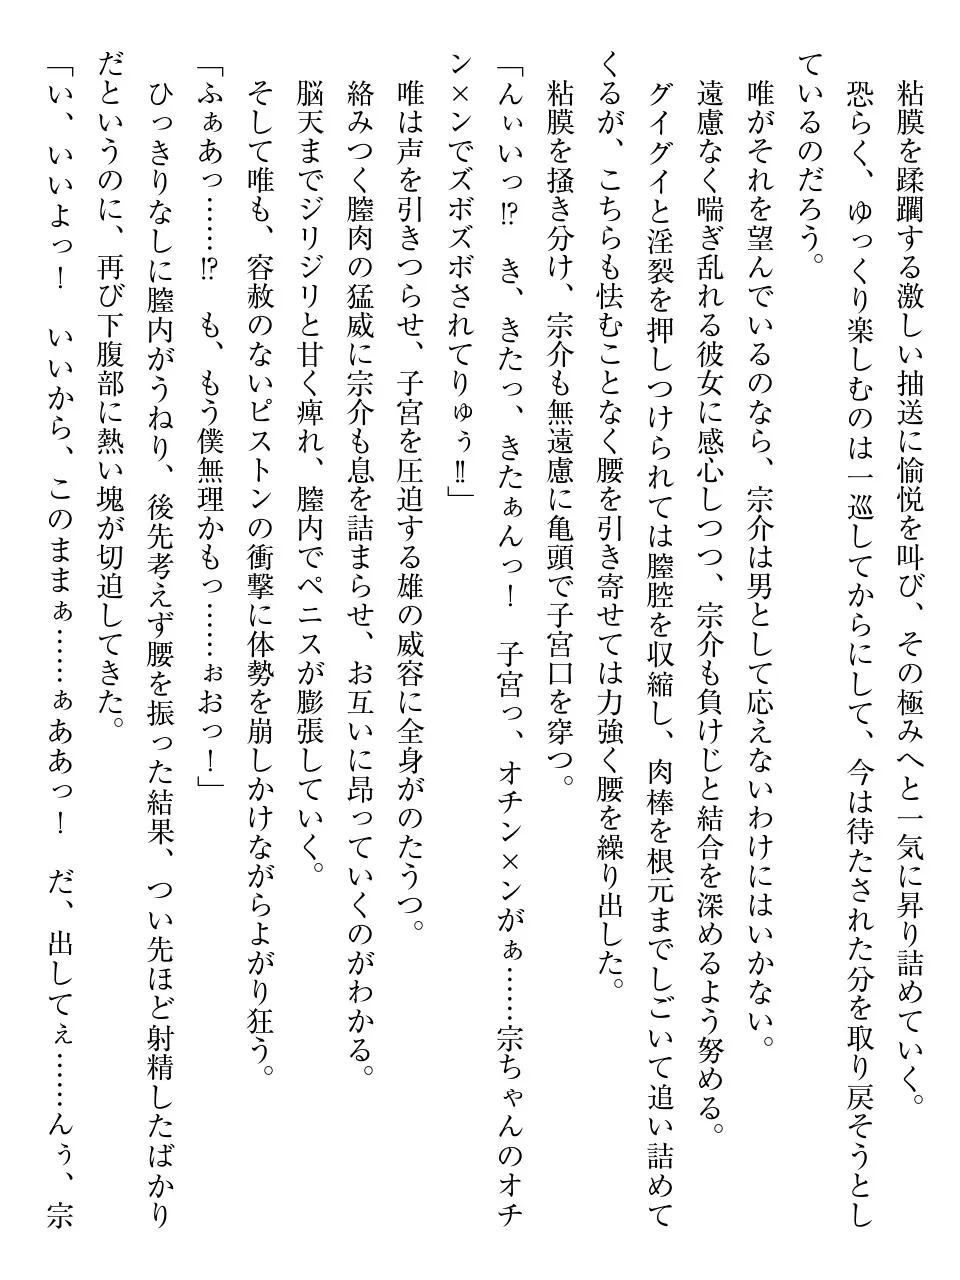 粘膜を蹂躙する激しい抽送に愉悦を叫び、その極みへと一気に昇り詰めていく。
恐らく、ゆっくり楽しむのは一巡してからにして、今は待たされた分を取り戻そうとし
ているのだろう。
唯がそれを望んでいるのなら、宗介は男として応えないわけにはいかない。
遠慮なく喘ぎ乱れる彼女に感心しつつ、宗介も負けじと結合を深めるよう努める。
グイグイと淫裂を押しつけられては膣腔を収縮し、肉棒を根元までしごいて追い詰めて
くるが、こちらも怯むことなく腰を引き寄せては力強く腰を繰り出した。
粘膜を掻き分け、宗介も無遠慮に亀頭で子宮口を穿つ。
「んぃいっ⁉　き、きたっ、きたぁんっ！　子宮っ、オチン×ンがぁ……宗ちゃんのオチ
ン×ンでズボズボされてりゅぅ‼」
唯は声を引きつらせ、子宮を圧迫する雄の威容に全身がのたうつ。
絡みつく膣肉の猛威に宗介も息を詰まらせ、お互いに昂っていくのがわかる。
脳天までジリジリと甘く痺れ、膣内でペニスが膨張していく。
そして唯も、容赦のないピストンの衝撃に体勢を崩しかけながらよがり狂う。
「ふぁあっ……⁉　も、もう僕無理かもっ……ぉおっ！」
ひっきりなしに膣内がうねり、後先考えず腰を振った結果、つい先ほど射精したばかり
だというのに、再び下腹部に熱い塊が切迫してきた。
「い、いいよっ！　いいから、このままぁ……ぁああっ！　だ、出してぇ……んぅ、宗